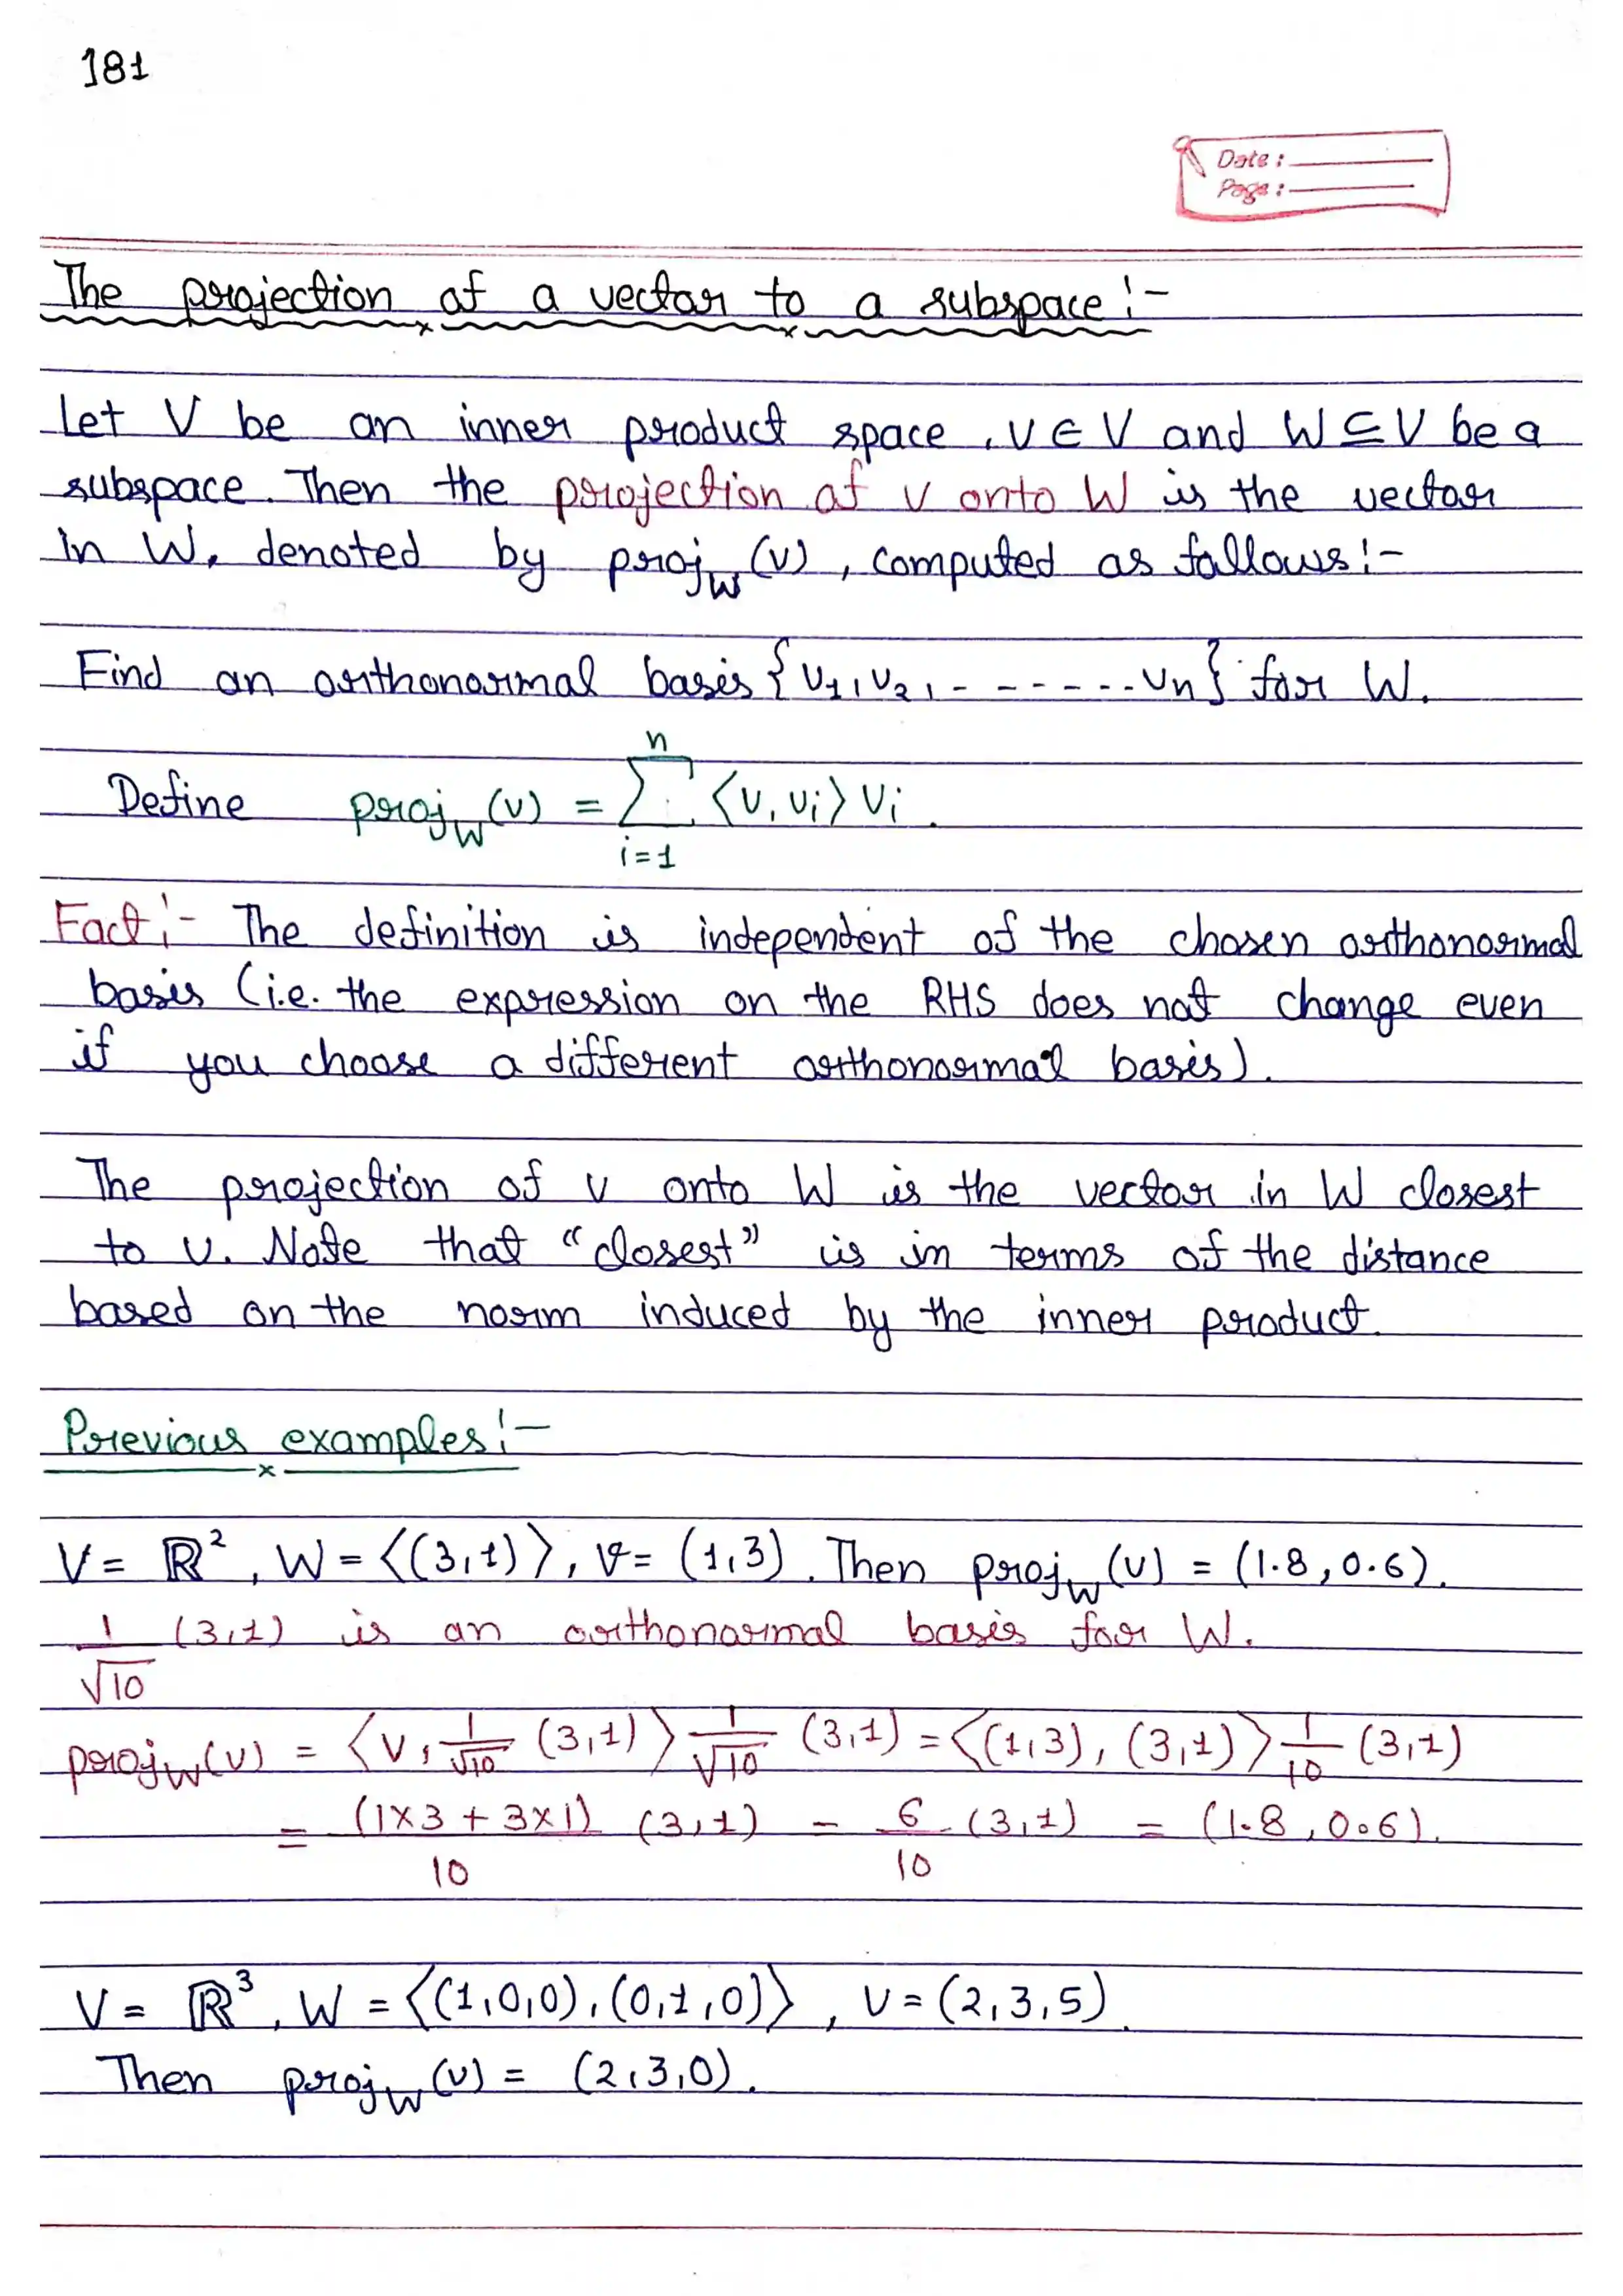 181
Date :
Page :
The projection of a vector to a subspace :-
Let V be an inner product space , v ∈ V and W ⊆ V be a
subspace. Then the projection of v onto W is the vector
in W, denoted by proj_W (v) , computed as follows :-
Find an orthonormal basis {v₁, v₂, - - - - - - - vₙ} for W.
Define proj_W (v) = ∑_{i=1}^{n} ⟨v, vᵢ⟩ vᵢ .
Fact :- The definition is independent of the chosen orthonormal
basis (i.e. the expression on the RHS does not change even
if you choose a different orthonormal basis).
The projection of v onto W is the vector in W closest
to v. Note that “closest” is in terms of the distance
based on the norm induced by the inner product.
Previous examples :-
V = ℝ² , W = ⟨(3,1)⟩, v = (1,3) . Then proj_W (v) = (1.8, 0.6).
1/√10 (3,1) is an orthonormal basis for W.
proj_W (v) = ⟨v, 1/√10 (3,1)⟩ 1/√10 (3,1) = ⟨(1,3), (3,1)⟩ 1/10 (3,1)
= (1×3 + 3×1)/10 (3,1) = 6/10 (3,1) = (1.8, 0.6).
V = ℝ³, W = ⟨(1,0,0), (0,1,0)⟩ , v = (2,3,5).
Then proj_W (v) = (2,3,0).